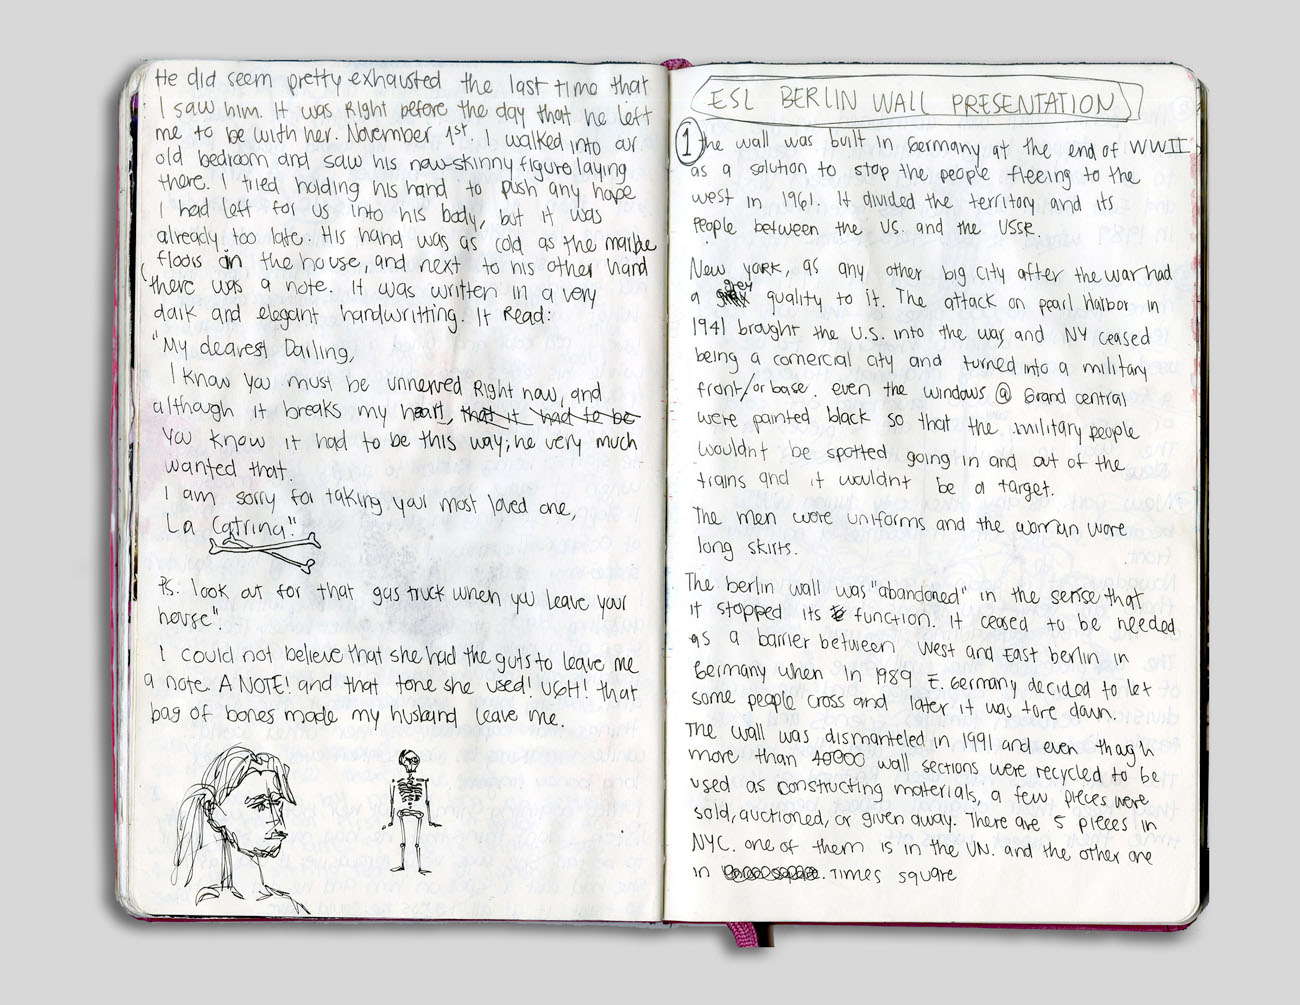 He did seem pretty exhausted the last time that
I saw him. It was Right before the day that he left
me to be with her. November 1st. I walked into our
old bedroom and saw his now-skinny figure laying
there. I tried holding his hand to push any hope
I had left for us into his body, but it was
already too late. His hand was as cold as the marble
floors on the house, and next to his other hand
there was a note. It was written in a very
dark and elegant handwritting. It Read:
"My dearest Darling,
I know you must be unnerved Right now, and
although it breaks my heart, that it had to be
You know it had to be this way; he very much
wanted that.
I am sorry for taking your most loved one,
La Catrina."
Ps: look out for that gas truck when you leave your
house".
I could not believe that she had the guts to leave me
a note. A NOTE! and that tone she used! UGH! that
bag of bones made my husband leave me.
ESL BERLIN WALL PRESENTATION
1 the wall was built in Germany at the end of WWII
as a solution to stop the people fleeing to the
west in 1961. It divided the territory and its
People between the US. and the USSR.
New york, as any other big City after the war had
a grey quality to it. The attack on pearl Harbor in
1941 brought the U.S. into the war, and NY ceased
being a comercial city and turned into a military
front/or base. even the windows @ Grand central
were painted black so that the military people
wouldnt be spotted going in and out of the
trains and it wouldnt be a target.
The men wore uniforms and the woman wore
long skirts.
The berlin wall was "abandoned" in the sense that
it stopped its function. It ceased to be needed
as a barrier between West and East berlin in
Germany when in 1989 E. Germany decided to let
some people cross and later it was tore down.
The wall was dismanteled in 1991 and even though
more than 40000 wall sections were recycled to be
used as constructing materials, a few pieces were
sold, auctioned, or given away. There are 5 pieces in
NYC. one of them is in the UN. and the other one
in Times square